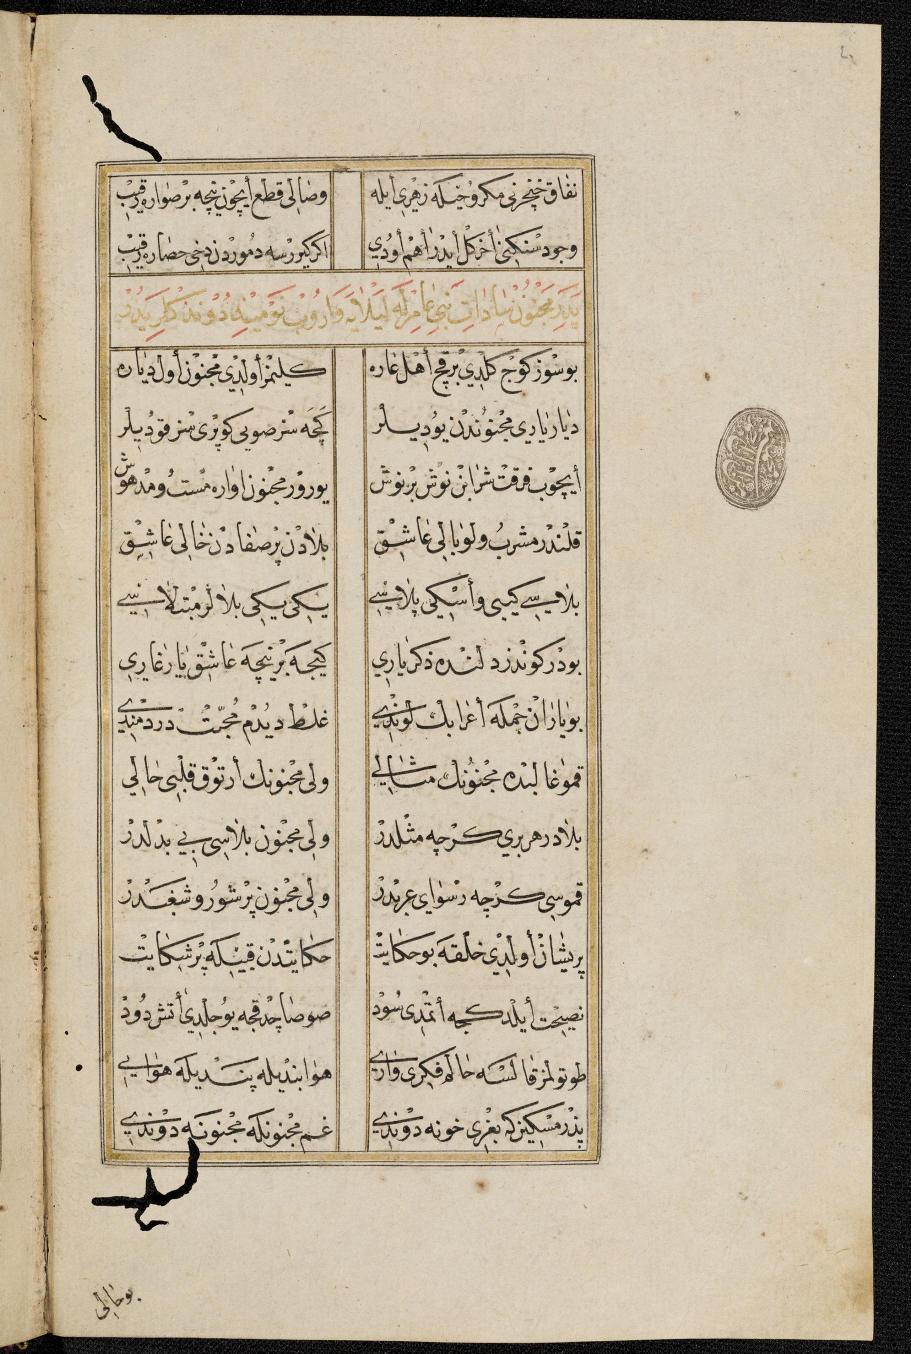 نفاق خنجرنی مکر و حیله زهری ایله وصالی قطع ایچون نیچه بر صواره رقیب
وجود سنکنی اخر کل ایدر اهم اودی اکر کیررسه دموردن دخی حصاره رقیب
پدر مجنون سادات بنی عامر له لیلایه واروب نومید دوندکلریدر
بو سوز کوج کلدی بر قچ اهل عاره کیلمز اولدی مجنون اول دیاره
دیار یاری مجنوندن یودیلر کچه سنر صویی کوپری سنر قودیلر
ایچوب فرقت شرابن نوش بر نوش یورور مجنون اواره مست و مدهوش
قلندر مشرب و لوبالی عاشق بلادن پر صفادن خالی عاشق
بلایسی کیبی و اسکی پلاسی یکی یکی بلالر مبتلاسی
بودر کوندزد لنده ذکر یاری کیجه بر نیچه عاشق یار غاری
بو یاران جمله اعرابک لوندی غلط دیدم محبت دردمندی
قمو غالبنده مجنونک مثالی ولی مجنونک ارتوق قلبی حالی
بلادر هر بری کرچه مثلدر ولی مجنون بلاسی بی بدلدر
قموسی کرچه رسوای عربدر ولی مجنون پر شور و شغبدر
پریشان اولدی خلقه بو حکایت حکایتدن قبیله پر شکایت
نصیحت ایلدکجه اتمدی سود صو صاچدقجه یوجلدی آتش دود
طوتولمز قالسه حالم فکری واری هوا بندیله پندیله هوایی
پدر مسکین که بغری خونه دوندی غم مجنونله مجنونه دوندی
بو حالی